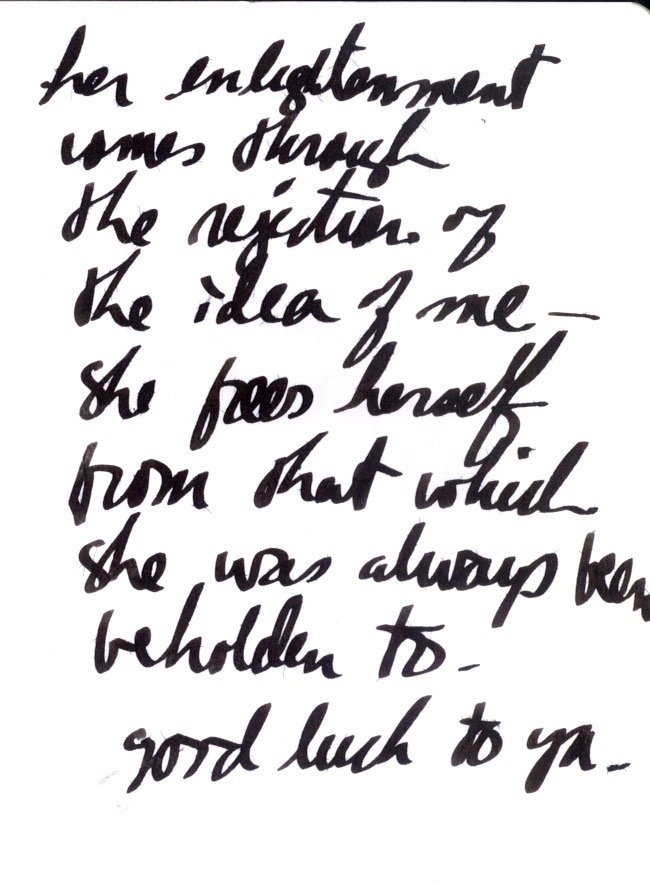 her enlightenment
comes through
the rejection of
the idea of me —
she frees herself
from that which
she was always been
beholden to -
good luck to ya -